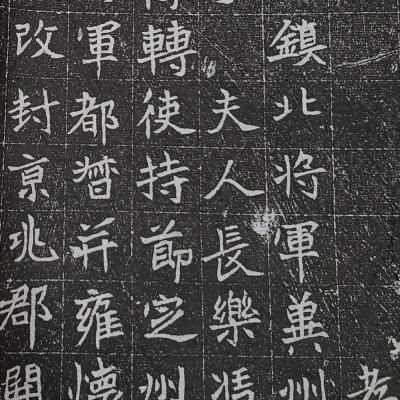 鎮北将軍兾州
夫人長樂馮
轉使持節定州
軍都督并雍懷
改封京兆郡開